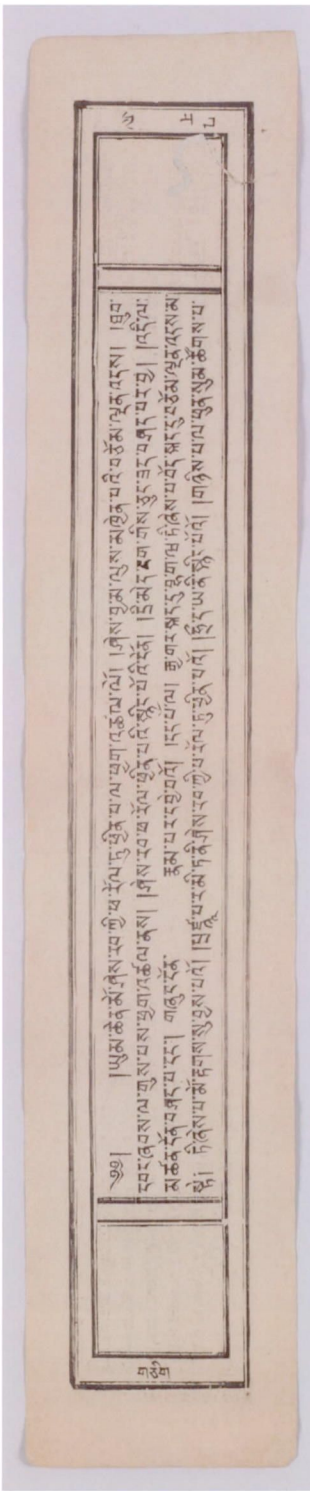 གཅིག
༄༅། །ཡུམ་ཆེན་མོ་ཤེས་རབ་ཀྱི་ཕ་རོལ་ཏུ་ཕྱིན་པ་ལ་ཕྱག་འཚལ་ལོ། །ཤེས་བྱ་མ་ལུས་མཁྱེན་པའི་བཅོམ་ལྡན་འདས། །ཐུབ་
དབང་ཞབས་ལ་གུས་པས་ཕྱག་འཚལ་ནས། །ཤེས་རབ་ཕ་རོལ་ཕྱིན་པའི་སྙིང་པོའི་དོན། །དྲི་མེད་ངག་གིས་ཅུང་ཟད་བཤད་པར་བྱ། །འདི་ལ་
མཚན་དོན་བཤད་པ་དང་། གཞུང་དོན་ རྣམ་པར་དབྱེ་བའོ། །དང་པོ་ལ། རྒྱ་གར་སྐད་དུ་བྷ་ག་ཝ་ཏི་ཞེས་པ་བོད་སྐད་དུ་བཅོམ་ལྡན་འདས་མ་
སྟེ། ཏི་ཞེས་པ་མོ་རྟགས་སུ་བྱས་པའོ། །པྲཛྙཱ་པ་ར་མི་ཏ་ནི་ཤེས་རབ་ཀྱི་ཕ་རོལ་ཏུ་ཕྱིན་པའོ། །ཧྲི་ད་ཡ་ནི་སྙིང་པོའོ། །གཉིས་པ་ལ་ཕུན་སུམ་ཚོགས་པ་